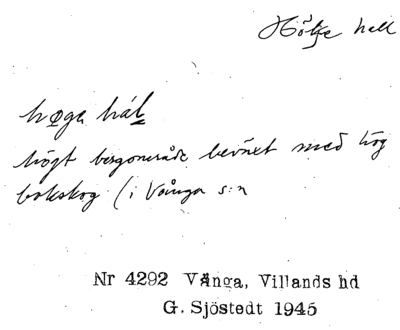 Hötje hall
høga hál
högt bergområde bevuxet med hög
bokskog (i Vånga s:n
Nr 4292 Vånga, Villands hd
G. Sjöstedt 1945